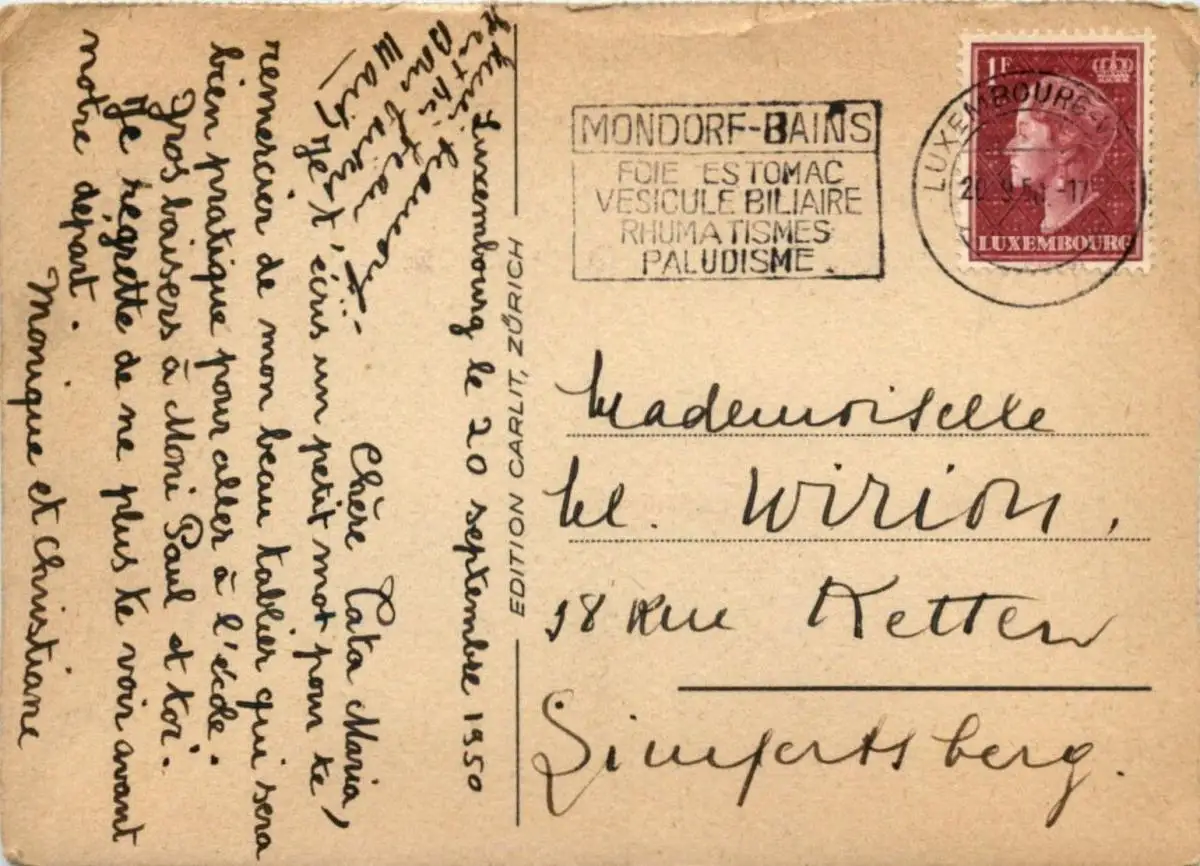 Luxembourg le 20 septembre 1950
Chère Tata Maria,
Je t'écris un petit mot pour te
remercier de mon beau tablier qui sera
bien pratique pour aller à l'école.
Gros baisers à Moni Paul et toi.
Je regrette de ne plus te voir avant
notre départ.
Monique et Christiane
EDITION CARLIT, ZÜRICH
MONDORF-BAINS
FOIE ESTOMAC
VESICULE BILIAIRE
RHUMATISMES
PALUDISME
LUXEMBOURG
1F
LUXEMBOURG
Mademoiselle
M. Wirion,
18 Rue Ketten
Limpertsberg.